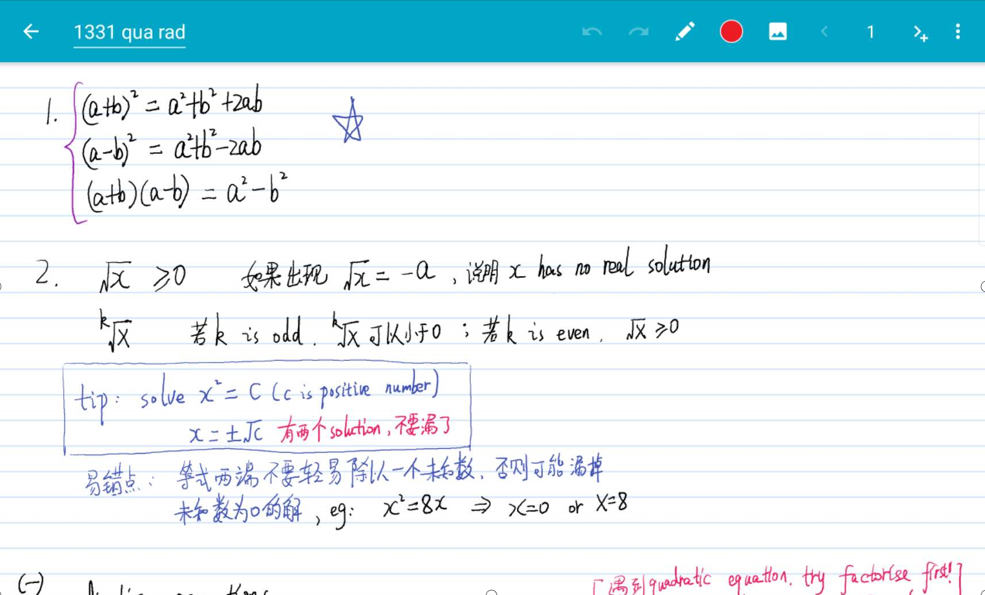 1331 qua rad
1
1. (a+b)² = a²+b²+2ab
(a-b)² = a²+b²-2ab
(a+b)(a-b) = a²-b²
2. √x ≥0 如果出现 √x = -a, 说明 x has no real solution
ᵏ√x 若k is odd. ᵏ√x 可以小于0 ; 若k is even. √x ≥0
tip: solve x² = C (c is positive number)
x = ±√c 有两个solution, 不要漏了
易错点: 等式两端不要轻易除以一个未知数, 否则可能漏掉
未知数为0的解, eg: x²=8x ⇒ x=0 or x=8
(一)
「遇到quadratic equation. try factorise first!」